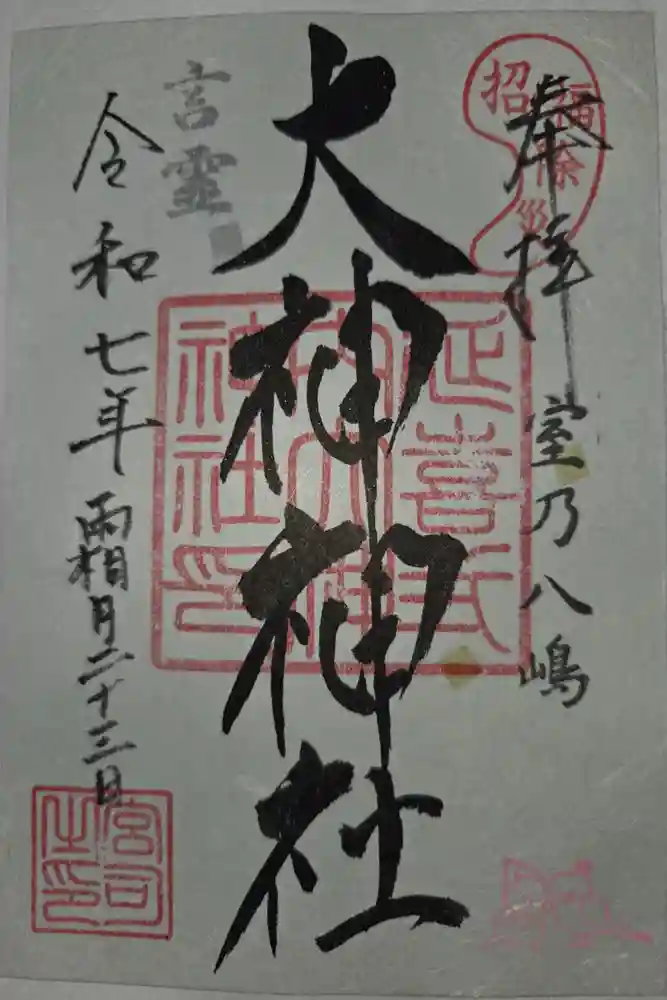 奉拝
室乃八嶋
招福除災
大神神社
延喜式内大神神社印
言霊
令和七年雨相月二十三日
宮司之印